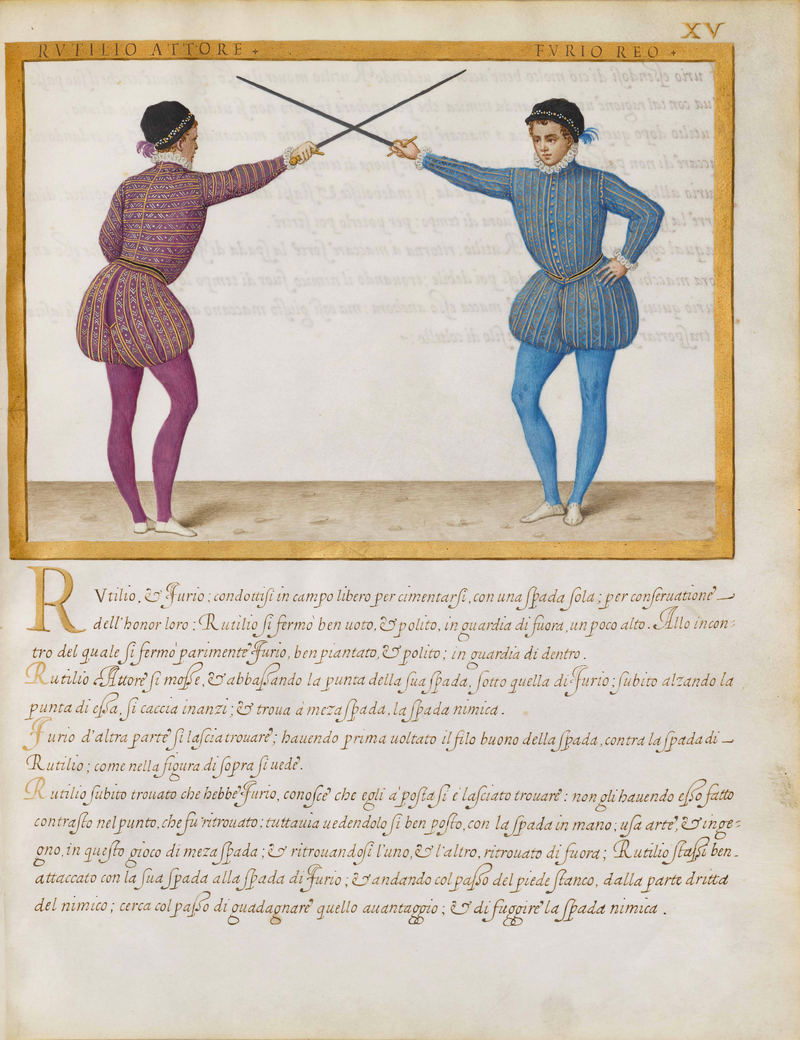 XV
RVTILIO ATTORE +
FVRIO REO +
RVtilio, & Furio; condottisi in campo libero per cimentarsi, con una spada sola; per conseruatione
dell'honor loro: Rutilio si fermò ben uoto, & polito, in guardia di fuora, un poco alto. Allo incon:
tro del quale si fermò parimente Furio, ben piantato, & polito; in guardia di dentro.
Rutilio Attore si mosse, & abbassando la punta della sua spada, sotto quella di Furio; subito alzando la
punta di essa, si caccia inanzi; & troua à meza spada, la spada nimica.
Furio d'altra parte si lascia trouare; hauendo prima uoltato il filo buono della spada, contra la spada di
Rutilio; come nella figura di sopra si uede.
Rutilio subito trouato che hebbe Furio, conosce che egli à posta si è lasciato trouare: non gli hauendo esso fatto
contrasto nel punto, che fu ritrouato; tuttauia uedendolo si ben posto, con la spada in mano; usa arte, & inge:
gno, in questo gioco di meza spada; & ritrouandosi l'uno, & l'altro, ritrouato di fuora; Rutilio stassi ben
attaccato con la sua spada alla spada di Furio; & andando col passo del piede stanco, dalla parte dritta
del nimico; cerca col passo di guadagnare quello auantaggio; & di fuggire la spada nimica.